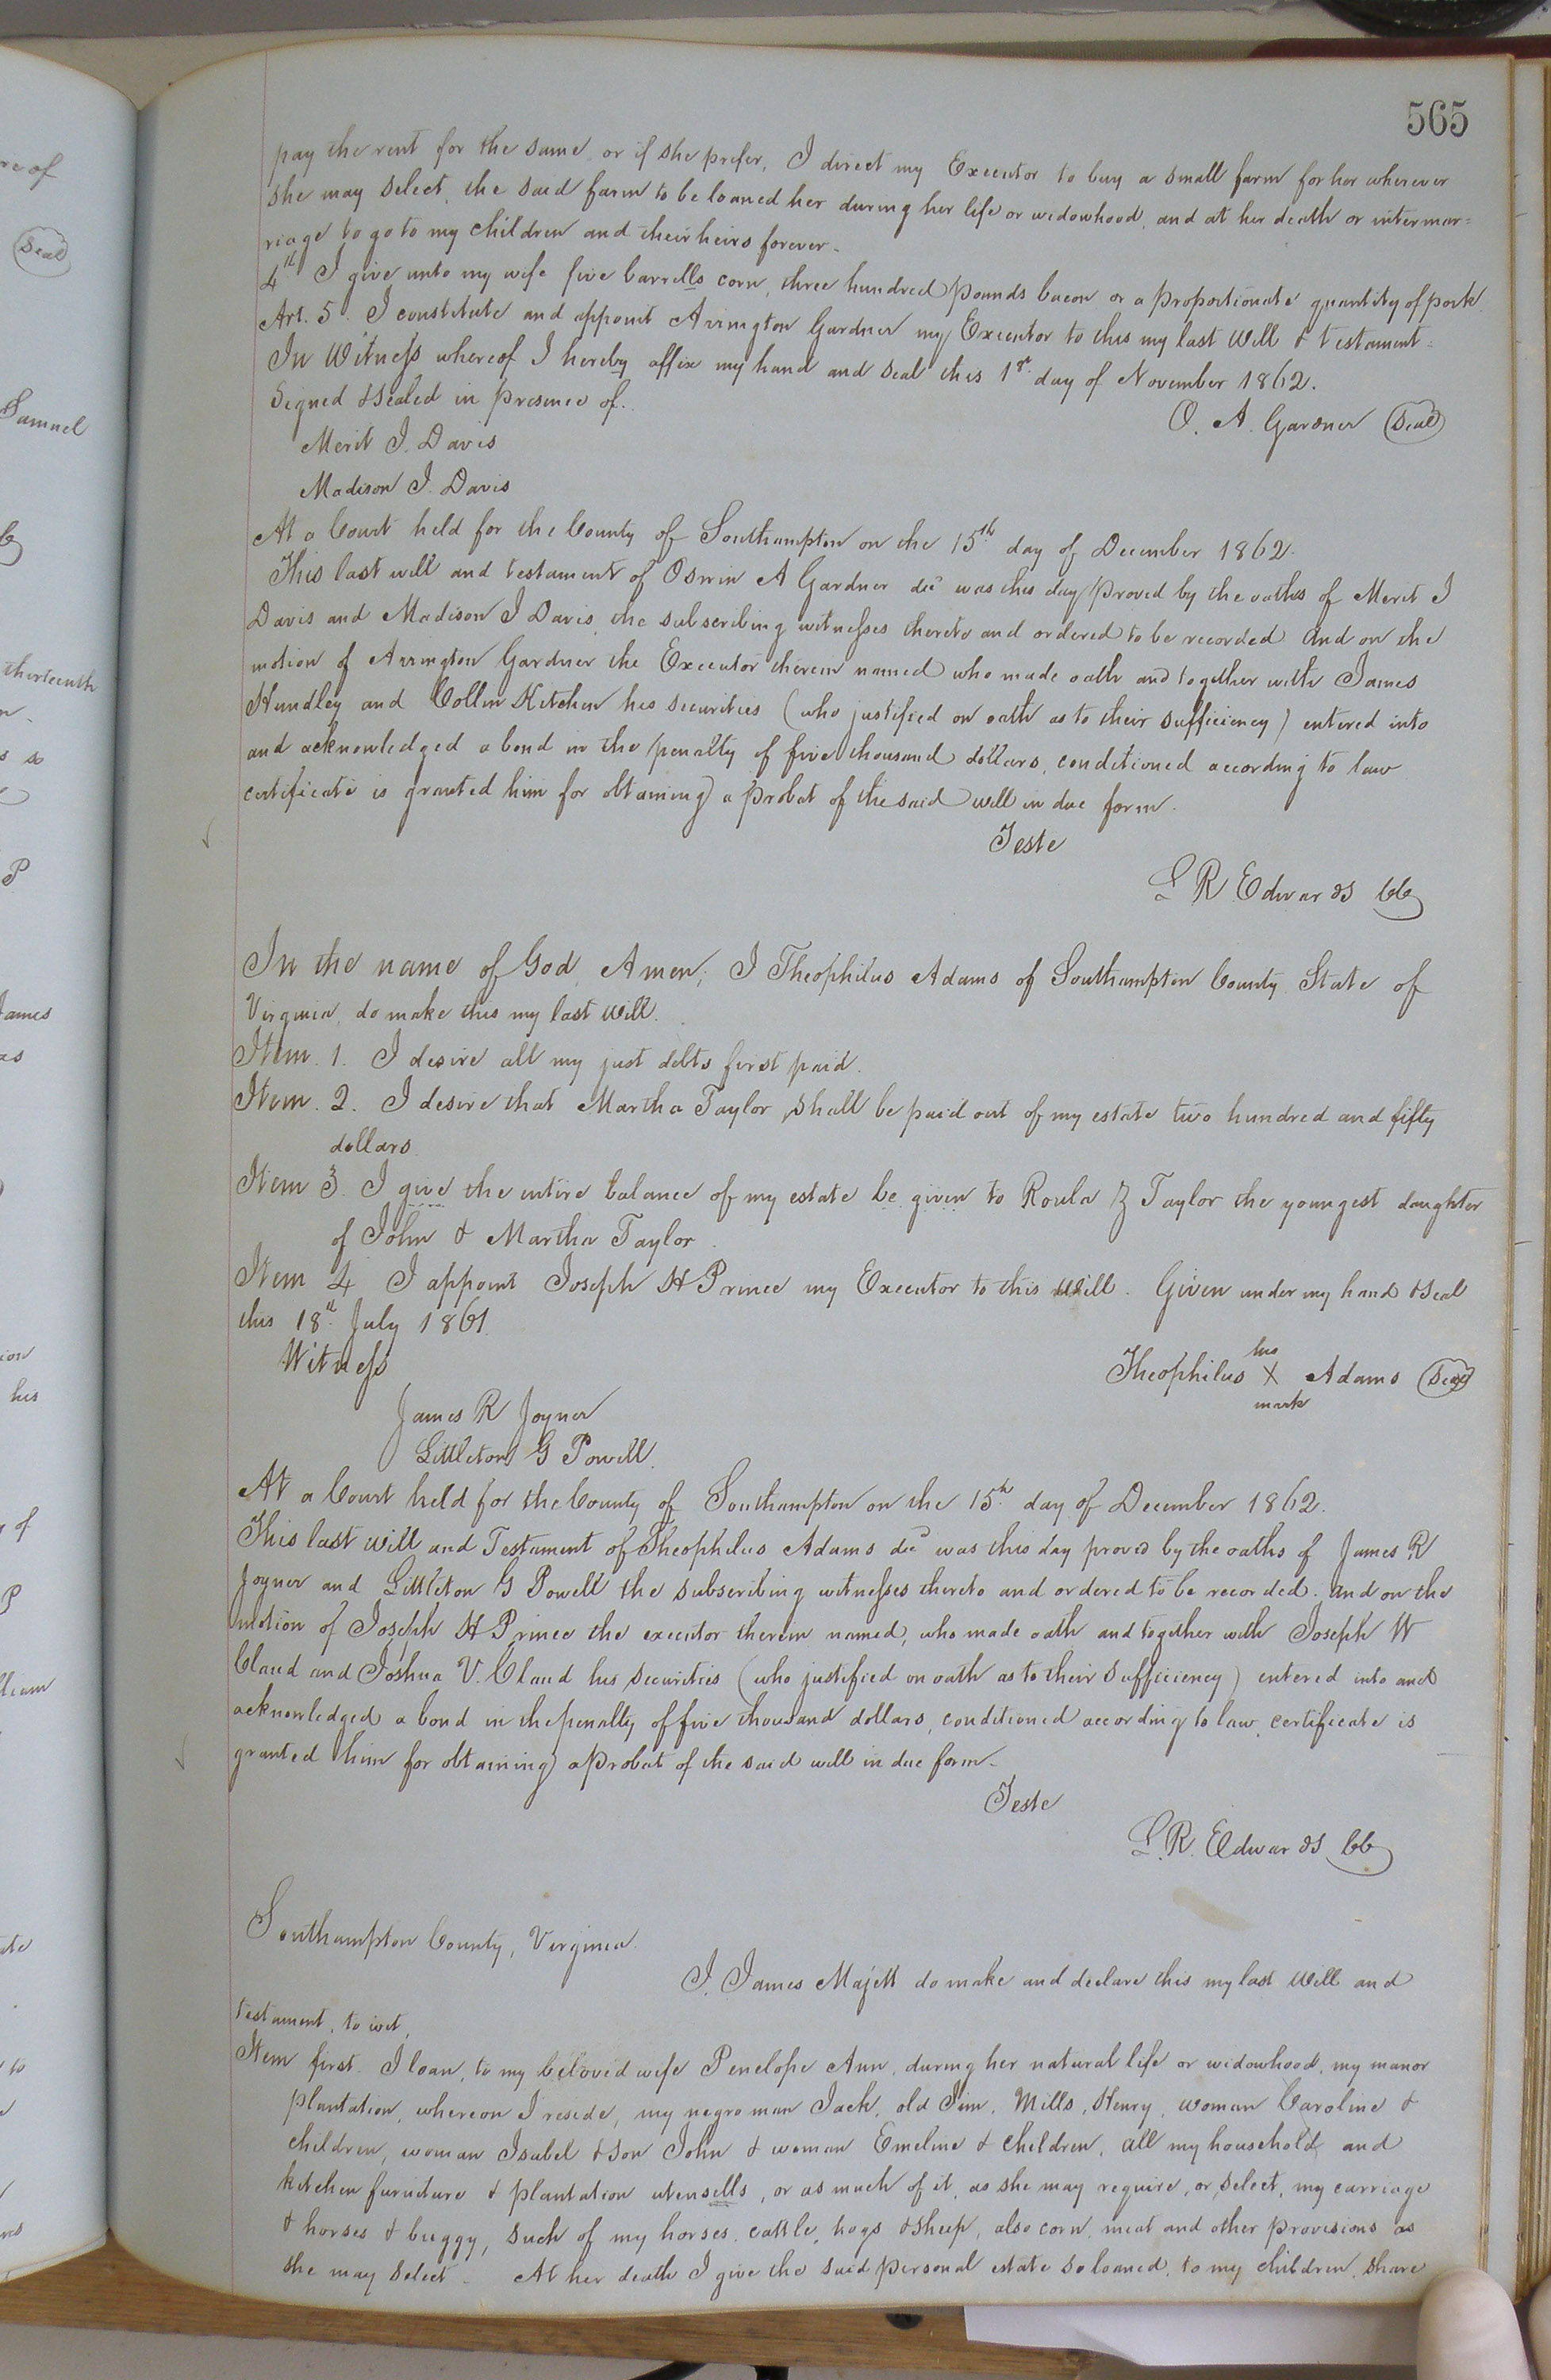 565
pay the rent for the same, or if she prefer, I direct my Executor to buy a small farm for her wherever
she may select, the said farm to be loaned her during her life or widowhood, and at her death or intermar=
riage to go to my children and their heirs forever.
4th I give unto my wife five barrells corn, three hundred pounds bacon or a proportionate quantity of pork
Art. 5. I constitute and appoint Arrington Gardner my Executor to this my last Will & testament.
In Witness whereof I hereby affix my hand and seal this 1st day of November 1862.
Signed & Sealed in presence of.
O. A. Gardner (Seal)
Merit I. Davis
Madison I. Davis
At a Court held for the County of Southampton on the 15th day of December 1862.
This last will and testament of Oswin A Gardner decd was this day proved by the oaths of Merit I
Davis and Madison I Davis, the subscribing witnesses thereto and ordered to be recorded And on the
motion of Arrington Gardner the Executor therein named who made oath and together with James
Hundley and Collin Kitchen his securities (who justified on oath as to their sufficiency) entered into
and acknowledged a bond in the penalty of five thousand dollars, conditioned according to law
certificate is granted him for obtaining a probat of the said will in due form.
Teste
L R Edwards CC
In the name of God, Amen; I Theophilus Adams of Southampton County State of
Virginia, do make this my last Will.
Item. 1. I desire all my just debts first paid.
Item. 2. I desire that Martha Taylor, shall be paid out of my estate two hundred and fifty
dollars
Item 3. I give the entire balance of my estate be given to Roula Z Taylor the youngest daughter
of John & Martha Taylor.
Item 4 I appoint Joseph H Prince my Executor to this Will. Given under my hand & Seal
this 18th July 1861.
Witness
Theophilus his X mark Adams (Seal)
James R Joyner
Littleton G Powell.
At a Court held for the County of Southampton on the 15th day of December 1862.
This last will and Testament of Theophilus Adams decd was this day proved by the oaths of James R
Joyner and Littleton G Powell the subscribing witnesses thereto and ordered to be recorded. And on the
motion of Joseph H Prince the executor therein named, who made oath and together with Joseph W
Claud and Joshua V. Claud his securities (who justified on oath as to their sufficiency) entered into and
acknowledged a bond in the penalty of five thousand dollars, conditioned according to law, certificate is
granted him for obtaining a probat of the said will in due form.
Teste
L. R. Edwards CC
Southampton County, Virginia.
I, James Majett do make and declare this my last Will and
testament, to wit,
Item first. I loan, to my beloved wife Penelope Ann, during her natural life or widowhood, my manor
plantation, whereon I reside, my negro man Jack, old Jim, Mills, Henry, woman Caroline &
children, woman Isabel & son John & woman Emeline & children, all my household and
kitchen furniture & plantation utensells, or as much of it, as she may require, or select, my carriage
& horses & buggy, such of my horses, cattle, hogs & sheep, also corn, meat and other provisions as
she may select. At her death I give the said personal estate so loaned, to my children, share